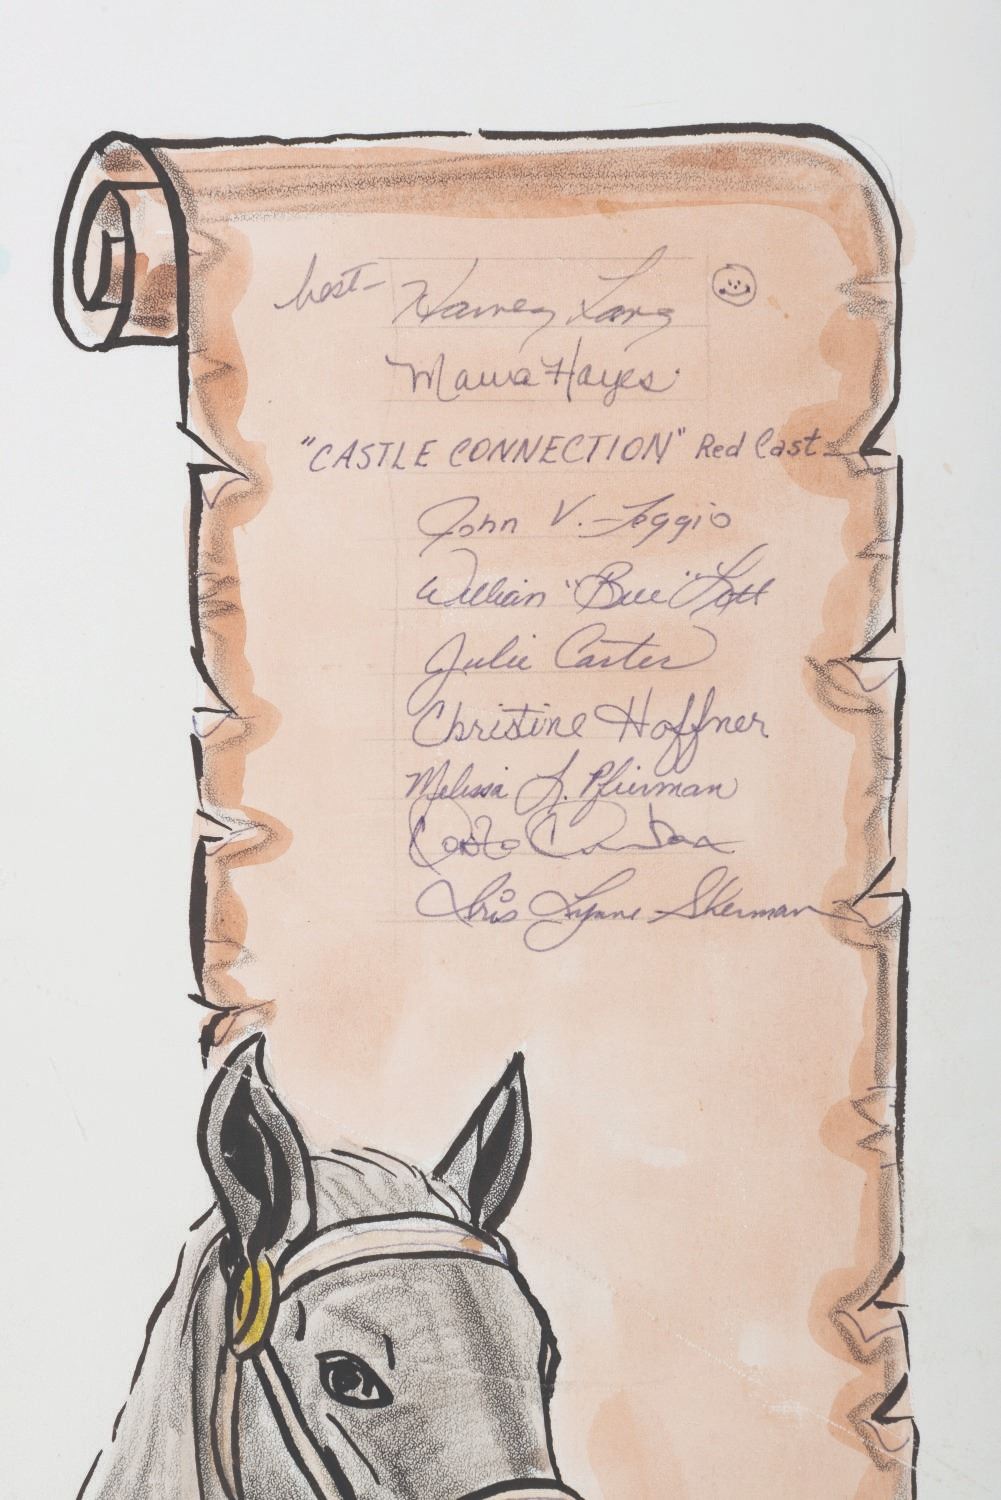 host- Harvey Lang
Maura Hayes
"CASTLE CONNECTION" Red Cast
John V. Foggio
William "Bill" Lott
Julie Carter
Christine Hoffner
Melissa J. Pfierman
Lynne Sherman